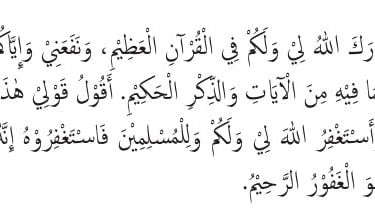 رَكَ اللهُ لِيْ وَلَكُمْ فِي الْقُرْآنِ الْعَظِيْمِ، وَنَفَعَنِيْ وَإِيَّاكُ
مَا فِيْهِ مِنَ الْآيَاتِ وَالذِّكْرِ الْحَكِيْمِ. أَقُوْلُ قَوْلِيْ هٰذَ
أَسْتَغْفِرُ اللهَ لِيْ وَلَكُمْ وَلِلْمُسْلِمِيْنَ فَاسْتَغْفِرُوْهُ إِنَّ
وَ الْغَفُوْرُ الرَّحِيْمُ.